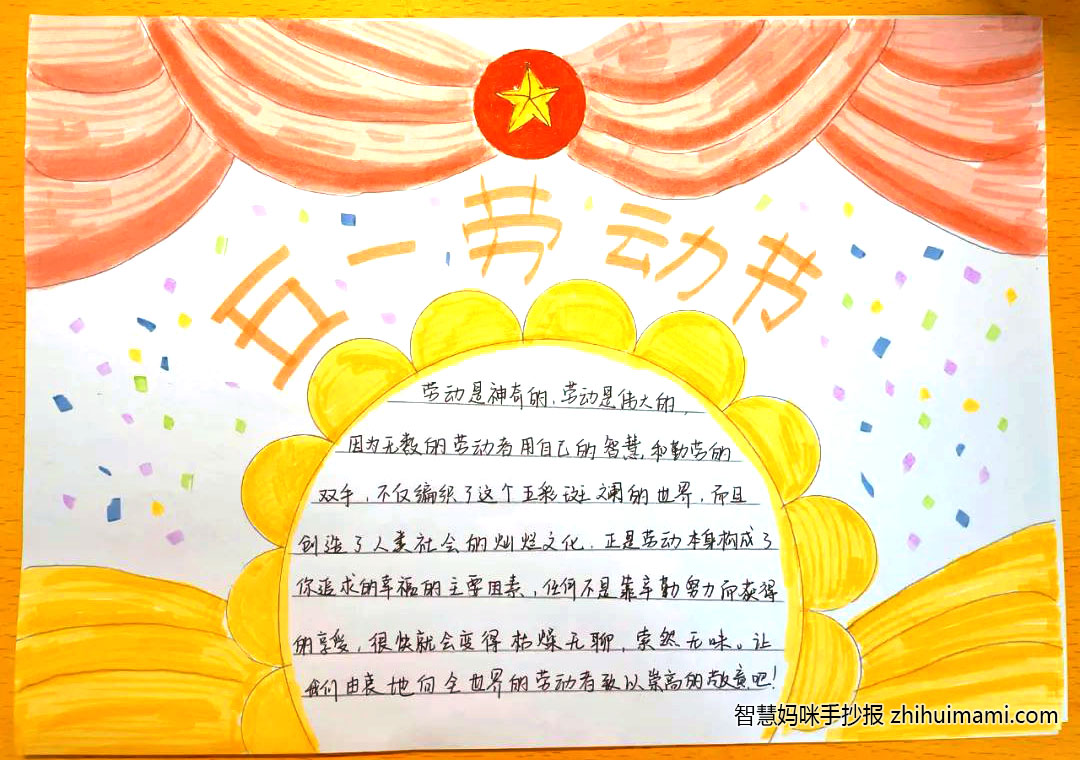 五一劳动节
劳动是神奇的，劳动是伟大的，
因为无数的劳动者用自己的智慧和勤劳的
双手，不仅编织了这个五彩斑斓的世界，而且
创造了人类社会的灿烂文化。正是劳动本身构成了
你追求的幸福的主要因素，任何不是靠辛勤努力而获得
的享受，很快就会变得枯燥无聊，索然无味。让
我们由衷地向全世界的劳动者致以崇高的敬意吧！
智慧妈咪手抄报 zhihuimami.com